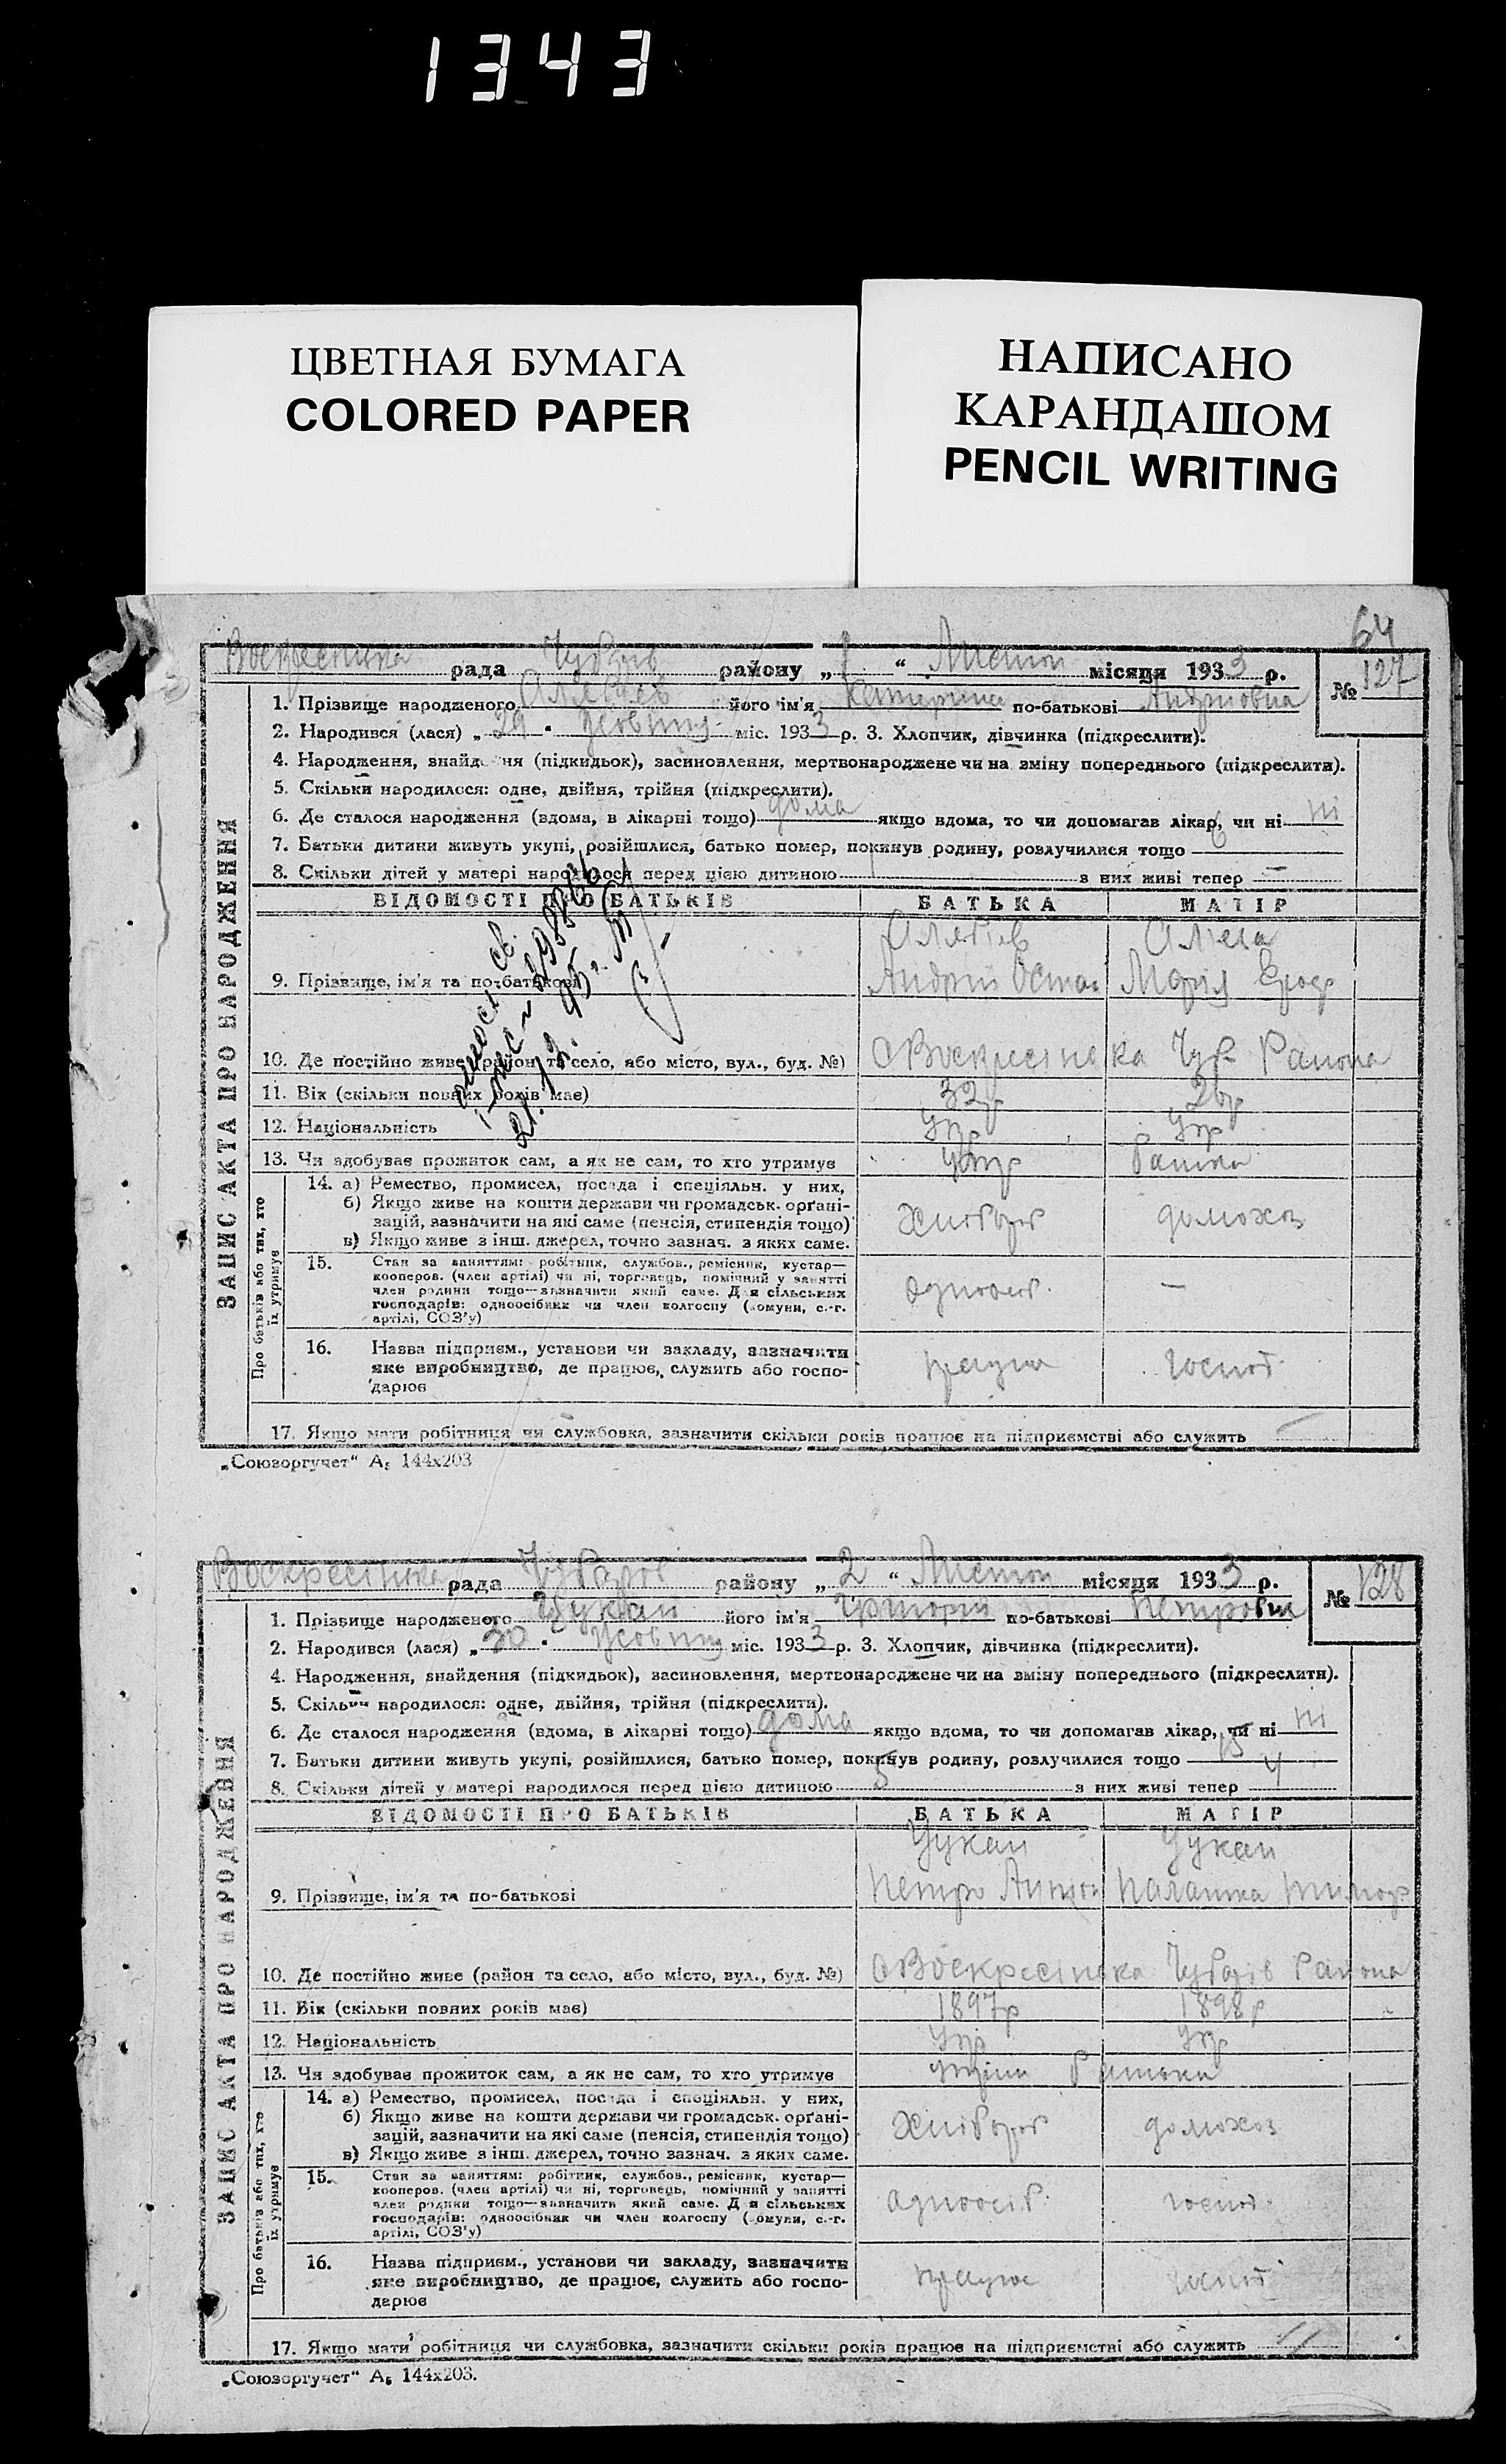 1343
ЦВЕТНАЯ БУМАГА
COLORED PAPER
НАПИСАНО
КАРАНДАШОМ
PENCIL WRITING
64
рада району „ “ Листоп місяця 1933 р.
№ 127
1. Прізвище народженого його ім'я Катерина по-батькові
2. Народився (лася) „29 “ Жовтня міс. 1933 р. 3. Хлопчик, дівчинка (підкреслити).
4. Народження, знайдення (підкидьок), засиновлення, мертвонароджене чи на зміну попереднього (підкреслити).
5. Скільки народилося: одне, двійня, трійня (підкреслити).
6. Де сталося народження (вдома, в лікарні тощо) дома якщо вдома, то чи допомагав лікар, чи ні ні
7. Батьки дитини живуть укупі, розійшлися, батько помер, покинув родину, розлучилися тощо
8. Скільки дітей у матері народилося перед цією дитиною 1 з них живі тепер —
ЗАПИС АКТА ПРО НАРОДЖЕННЯ
ВІДОМОСТІ ПРО БАТЬКІВ БАТЬКА МАТІР
9. Прізвище, ім'я та по-батькові
Андрій Остап Марія
10. Де постійно живе (район та село, або місто, вул., буд. №) с Воскресінська Чуб Района
11. Вік (скільки повних років має) 32р 26р
12. Національність Укр Укр
13. Чи здобуває прожиток сам, а як не сам, то хто утримує
Про батьків або тих, хто їх утримує
14. а) Ремество, промисел, посада і спеціяльн. у них,
б) Якщо живе на кошти держави чи громадськ. орґані-
зацій, зазначити на які саме (пенсія, стипендія тощо) Хлібороб домохоз
в) Якщо живе з інш. джерел, точно зазнач. з яких саме.
15. Стан за заняттям: робітник, службов., ремісник, кустар—
кооперов. (член артілі) чи ні, торговець, помічний у занятті
член родини тощо—зазначити який саме. Для сільських
господарів: одноосібник чи член колгоспу (комуни, с.-г.
артілі, СОЗ'у)
одноосіб. —
16. Назва підприєм., установи чи закладу, зазначити
яке виробництво, де працює, служить або госпо-
дарює
працює господ.
17. Якщо мати робітниця чи службовка, зазначити скільки років працює на підприємстві або служить —
„Союзоргучет“ А₅ 144х203
Воскресінська рада Чубарів району „2 “ Листоп місяця 1933 р.
№ 128
1. Прізвище народженого Цукан його ім'я Григорій по-батькові Петрович
2. Народився (лася) „30 “ Жовтня міс. 1933 р. 3. Хлопчик, дівчинка (підкреслити).
4. Народження, знайдення (підкидьок), засиновлення, мертвонароджене чи на зміну попереднього (підкреслити).
5. Скільки народилося: одне, двійня, трійня (підкреслити).
6. Де сталося народження (вдома, в лікарні тощо) дома якщо вдома, то чи допомагав лікар, чи ні ні
7. Батьки дитини живуть укупі, розійшлися, батько помер, покинув родину, розлучилися тощо
8. Скільки дітей у матері народилося перед цією дитиною 5 з них живі тепер 4
ЗАПИС АКТА ПРО НАРОДЖЕННЯ
ВІДОМОСТІ ПРО БАТЬКІВ БАТЬКА МАТІР
Цукан Цукан
9. Прізвище, ім'я та по-батькові Петро Антон Палашка Тимоф
10. Де постійно живе (район та село, або місто, вул., буд. №) с Воскресінська Чубарів Района
11. Вік (скільки повних років має) 1897р 1898р
12. Національність Укр Укр
13. Чи здобуває прожиток сам, а як не сам, то хто утримує
Про батьків або тих, хто їх утримує
14. а) Ремество, промисел, посада і спеціяльн. у них,
б) Якщо живе на кошти держави чи громадськ. орґані-
зацій, зазначити на які саме (пенсія, стипендія тощо) Хлібороб домохоз
в) Якщо живе з інш. джерел, точно зазнач. з яких саме.
15. Стан за заняттям: робітник, службов., ремісник, кустар—
кооперов. (член артілі) чи ні, торговець, помічний у занятті
член родини тощо—зазначити який саме. Для сільських
господарів: одноосібник чи член колгоспу (комуни, с.-г.
артілі, СОЗ'у)
одноосіб. господ.
16. Назва підприєм., установи чи закладу, зазначити
яке виробництво, де працює, служить або госпо-
дарює
працює господ
17. Якщо мати робітниця чи службовка, зазначити скільки років працює на підприємстві або служить
„Союзоргучет“ А₅ 144х203.